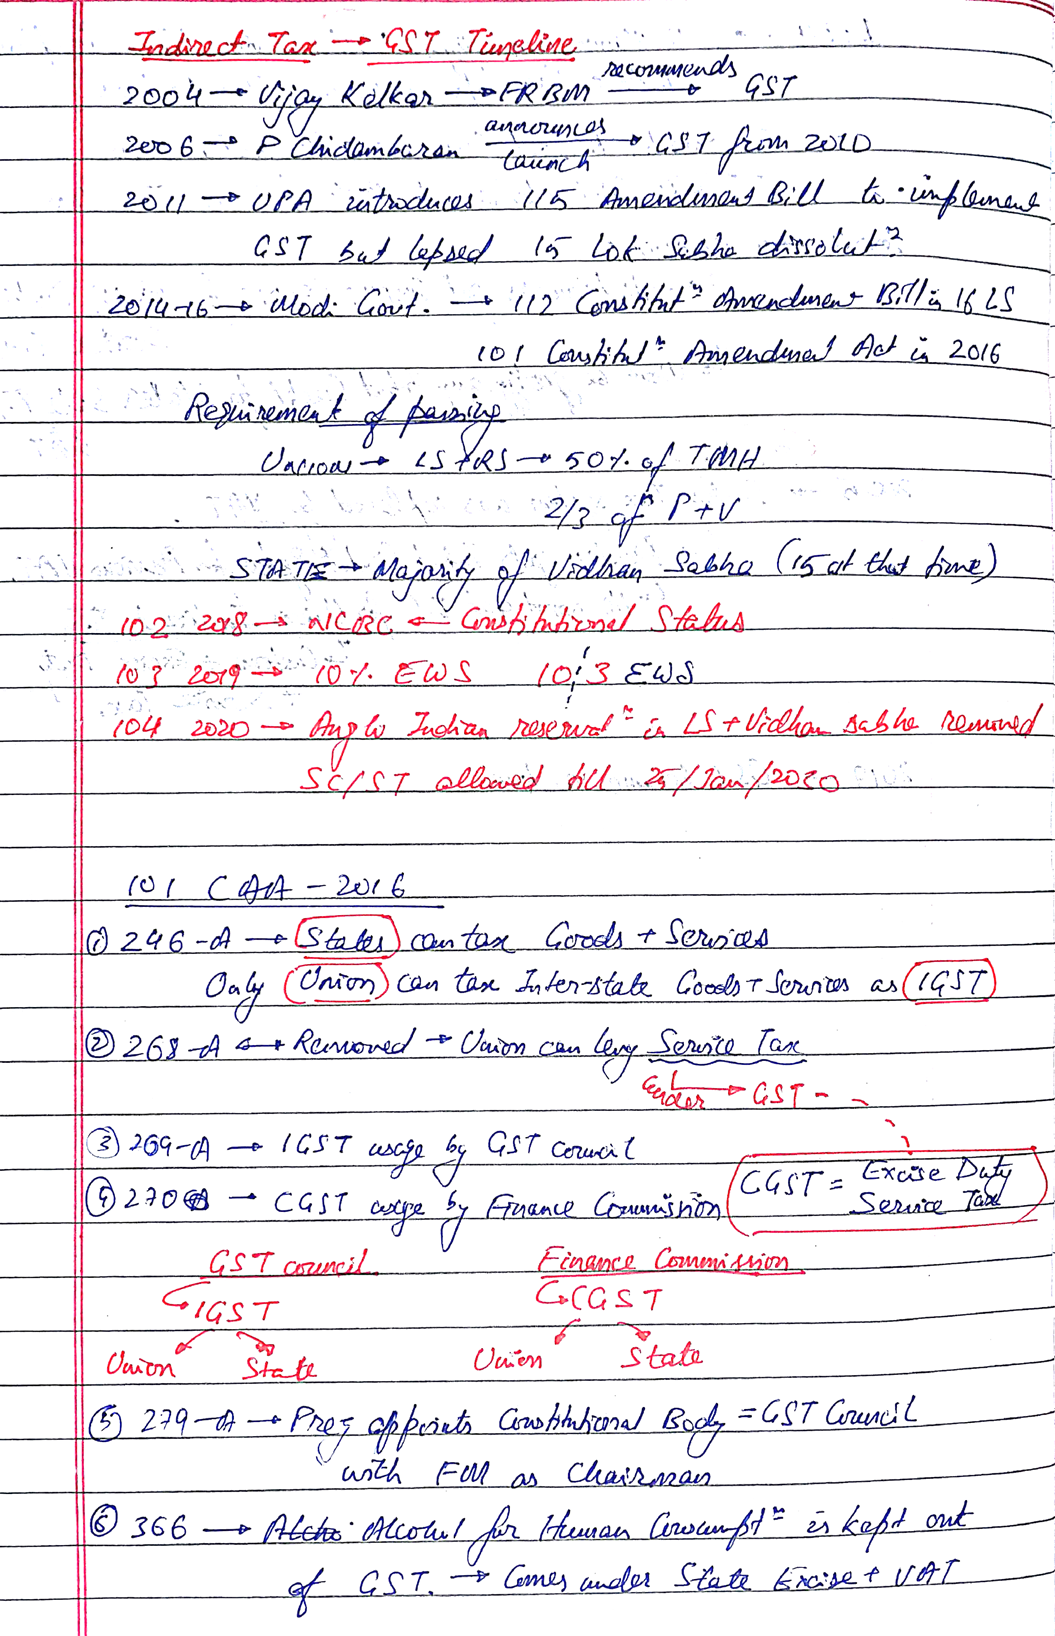 Indirect Tax → GST Timeline
2004 → Vijay Kelkar → FRBM recommends → GST
2006 → P Chidambaran announces launch → GST from 2010
2011 → UPA introduces 115 Amendment Bill to implement
GST but lapsed 15 Lok Sabha dissolutⁿ
2014-16 → Modi Govt. → 112 Constitutⁿ Amendment Bill in 16 LS
101 Constitutⁿ Amendment Act in 2016
Requirement of passing
Union → LS + RS → 50% of TMH
2/3 of P+V
STATE → Majority of Vidhan Sabha (15 at that time)
102 2018 → NCBC ← Constitutional Status
103 2019 → 10% EWS 10¦3 EWS
104 2020 → Anglo Indian reservatⁿ in LS + Vidhan sabha removed
SC/ST allowed till 25/Jan/2030
101 CAA - 2016
① 246-A → States can tax Goods + Services
Only Union can tax Inter-state Goods + Services as IGST
② 268-A ↔ Removed → Union can levy Service Tax
Under → GST
③ 269-A → IGST usage by GST council
④ 270 → CGST usage by Finance Commission
CGST = Excise Duty
Service Tax
GST council Finance Commission
IGST CGST
Union State Union State
⑤ 279-A → Prez appoints Constitutional Body = GST Council
with FM as Chairman
⑥ 366 → Alcohol for Human Consumptⁿ is kept out
of GST. → Comes under State Excise + VAT